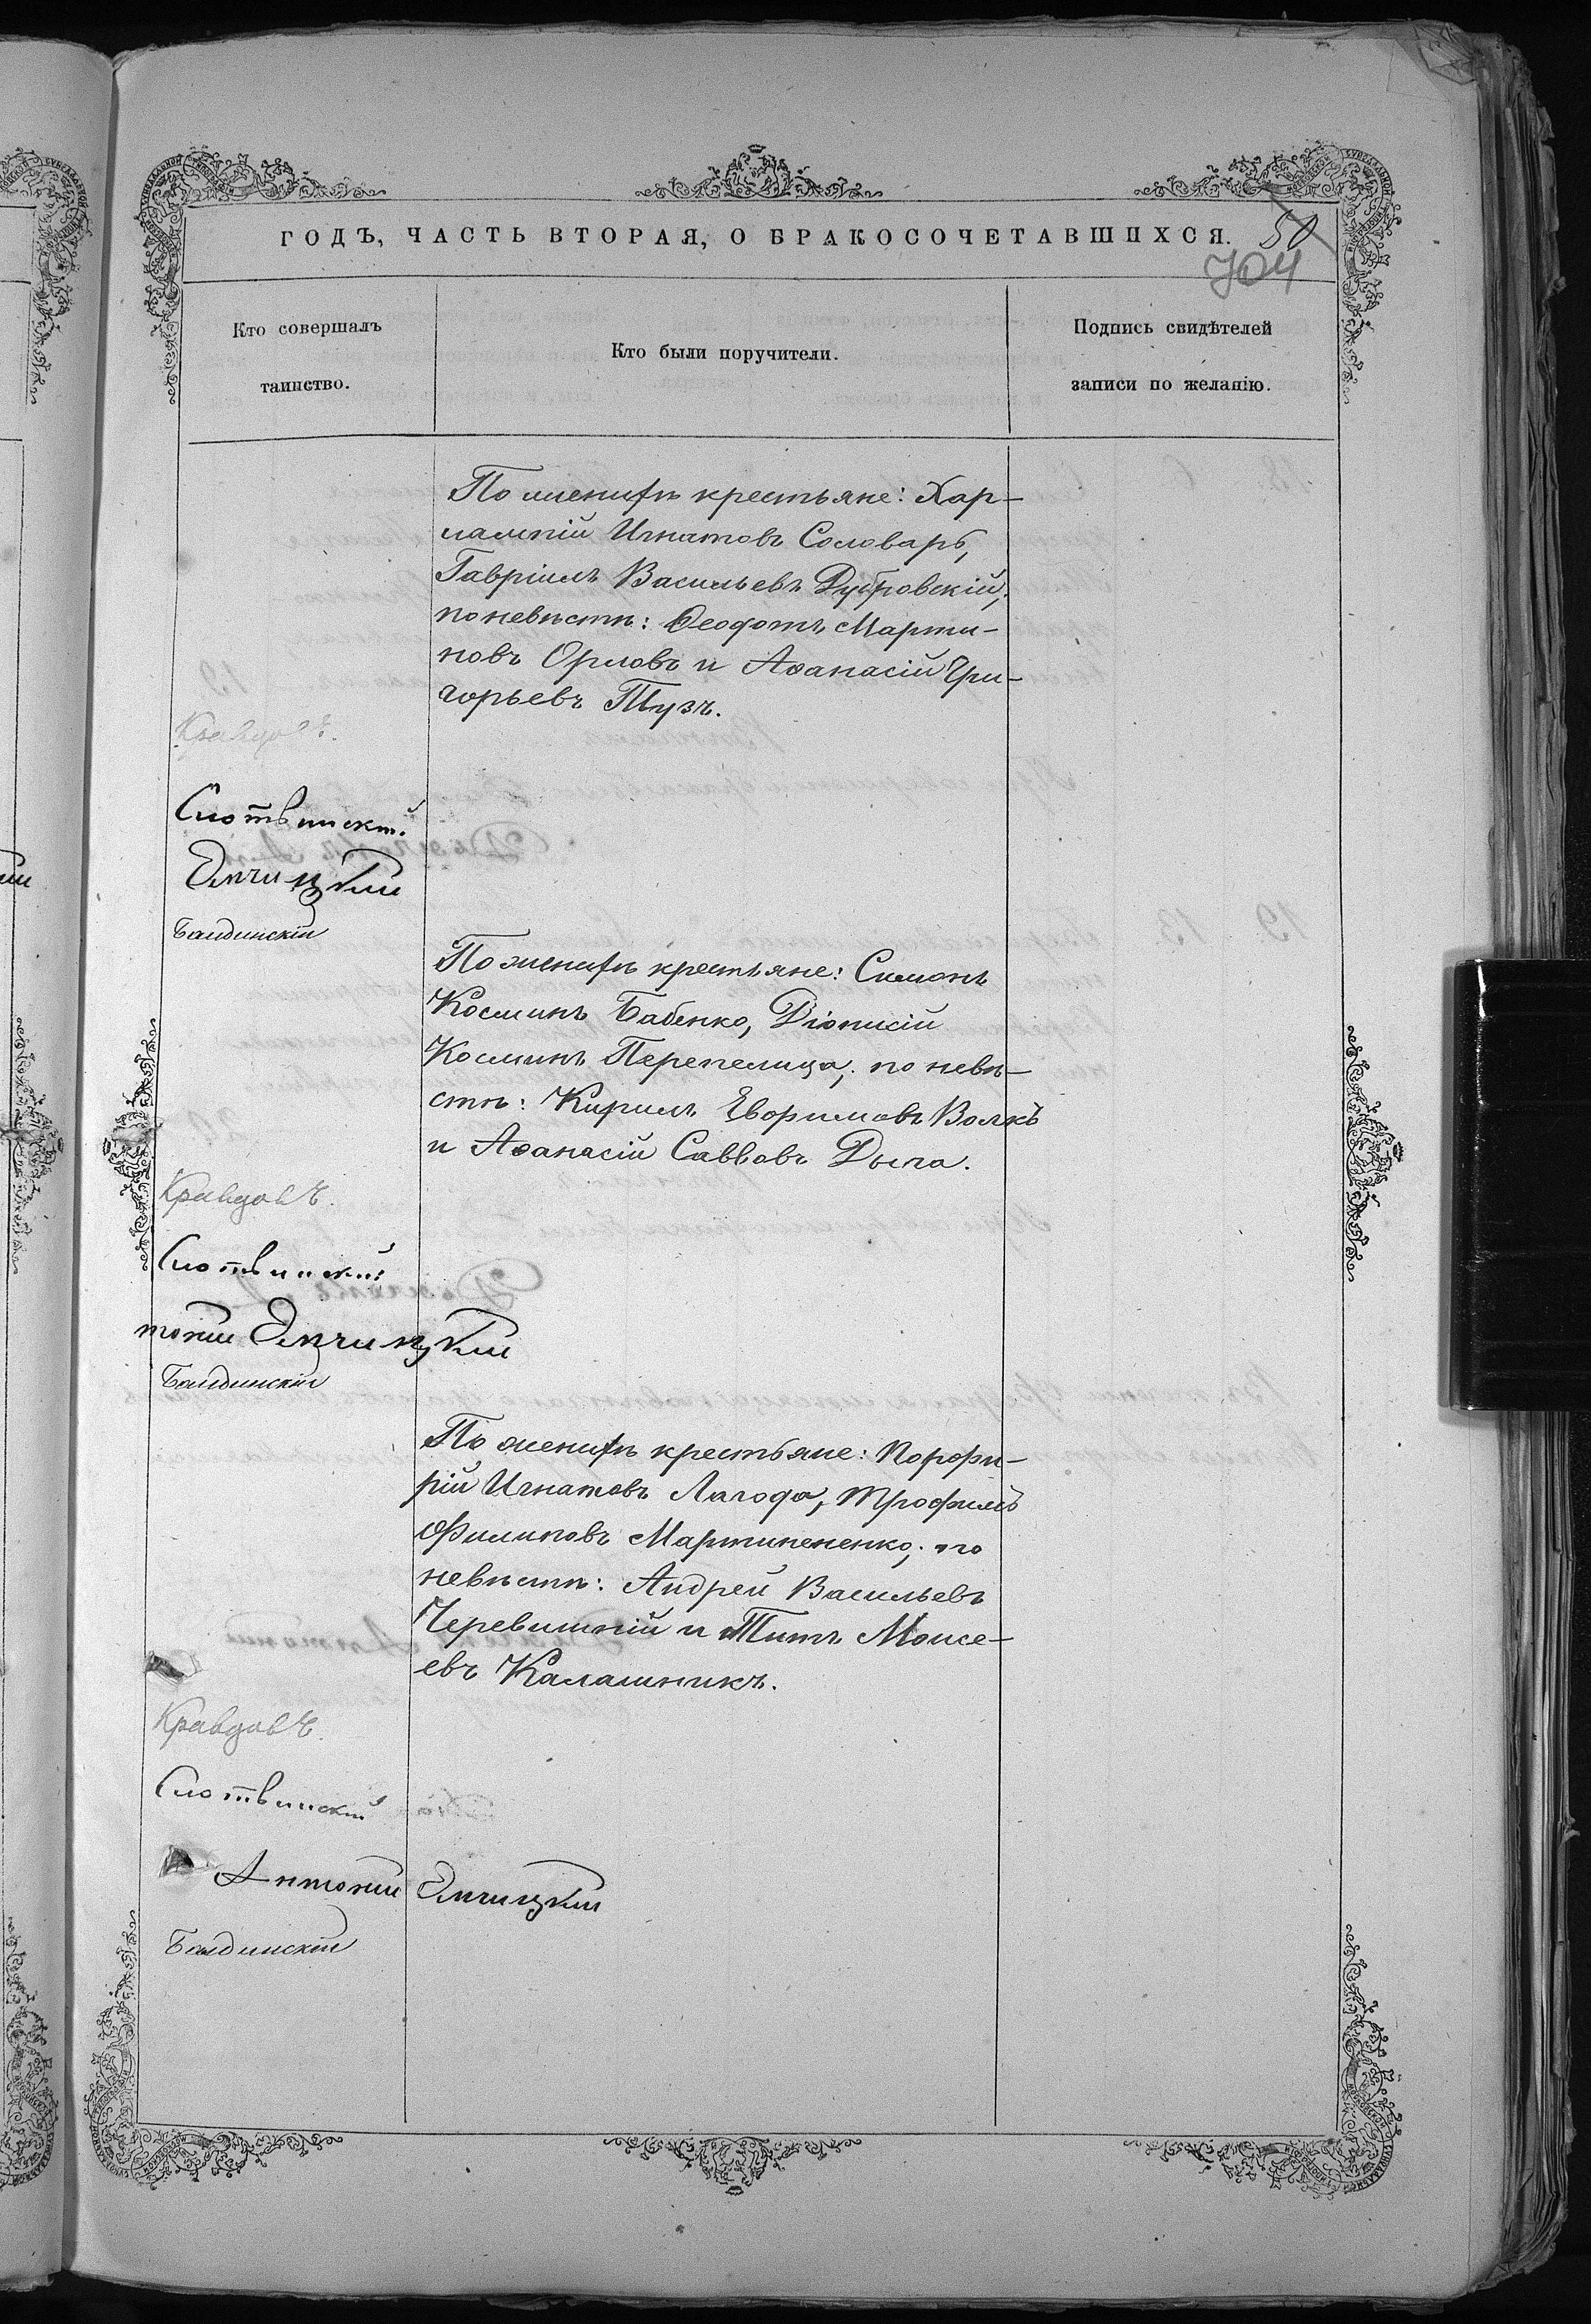 ГОДЪ, ЧАСТЬ ВТОРАЯ, О БРАКОСОЧЕТАВШИХСЯ.
50
704
Кто совершалъ
таинство.
Кто были поручители.
Подпись свидѣтелей
записи по желанію.
По женихѣ крестьяне: Хар-
лампій Игнатовъ Соловарь,
Гавріилъ Васильевъ Дубровскій;
по невѣстѣ: Ѳеодотъ Марти-
новъ Орловъ и Аѳанасій Гри-
горьевъ Тузъ.
Кравцовъ.
Слотвинскій
Балдинскій
По женихѣ крестьяне: Симонъ
Косминъ Бабенко, Діонисій
Косминъ Перепелица; по невѣ-
стѣ: Кирилъ Евфимовъ Волкъ
и Аѳанасій Саввовъ Дыга.
Кравцовъ.
Слотвинскій
тоній
Балдинскій
По женихѣ крестьяне: Порфи-
рій Игнатовъ Лагода, Трофимъ
Филиповъ Мартиненко; по
невѣстѣ: Андрей Васильевъ
Черевишній и Титъ Моисе-
евъ Калашникъ.
Кравцовъ.
Слотвинскій
Антоній
Балдинскій